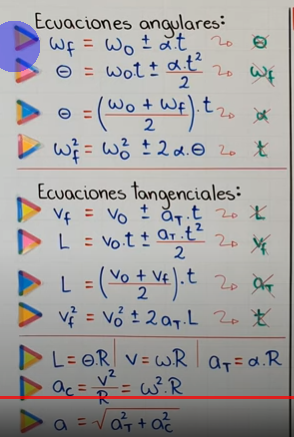 Ecuaciones angulares:
ωf = ω0 ± α.t → θ
θ = ω0.t ± α.t²/2 → ωf
θ = (ω0 + ωf / 2).t → α
ωf² = ω0² ± 2α.θ → t
Ecuaciones tangenciales:
vf = v0 ± aT.t → L
L = v0.t ± aT.t²/2 → vf
L = (v0 + vf / 2).t → aT
vf² = v0² ± 2aT.L → t
L = θ.R | v = ω.R | aT = α.R
ac = v²/R = ω².R
a = √(aT² + ac²)